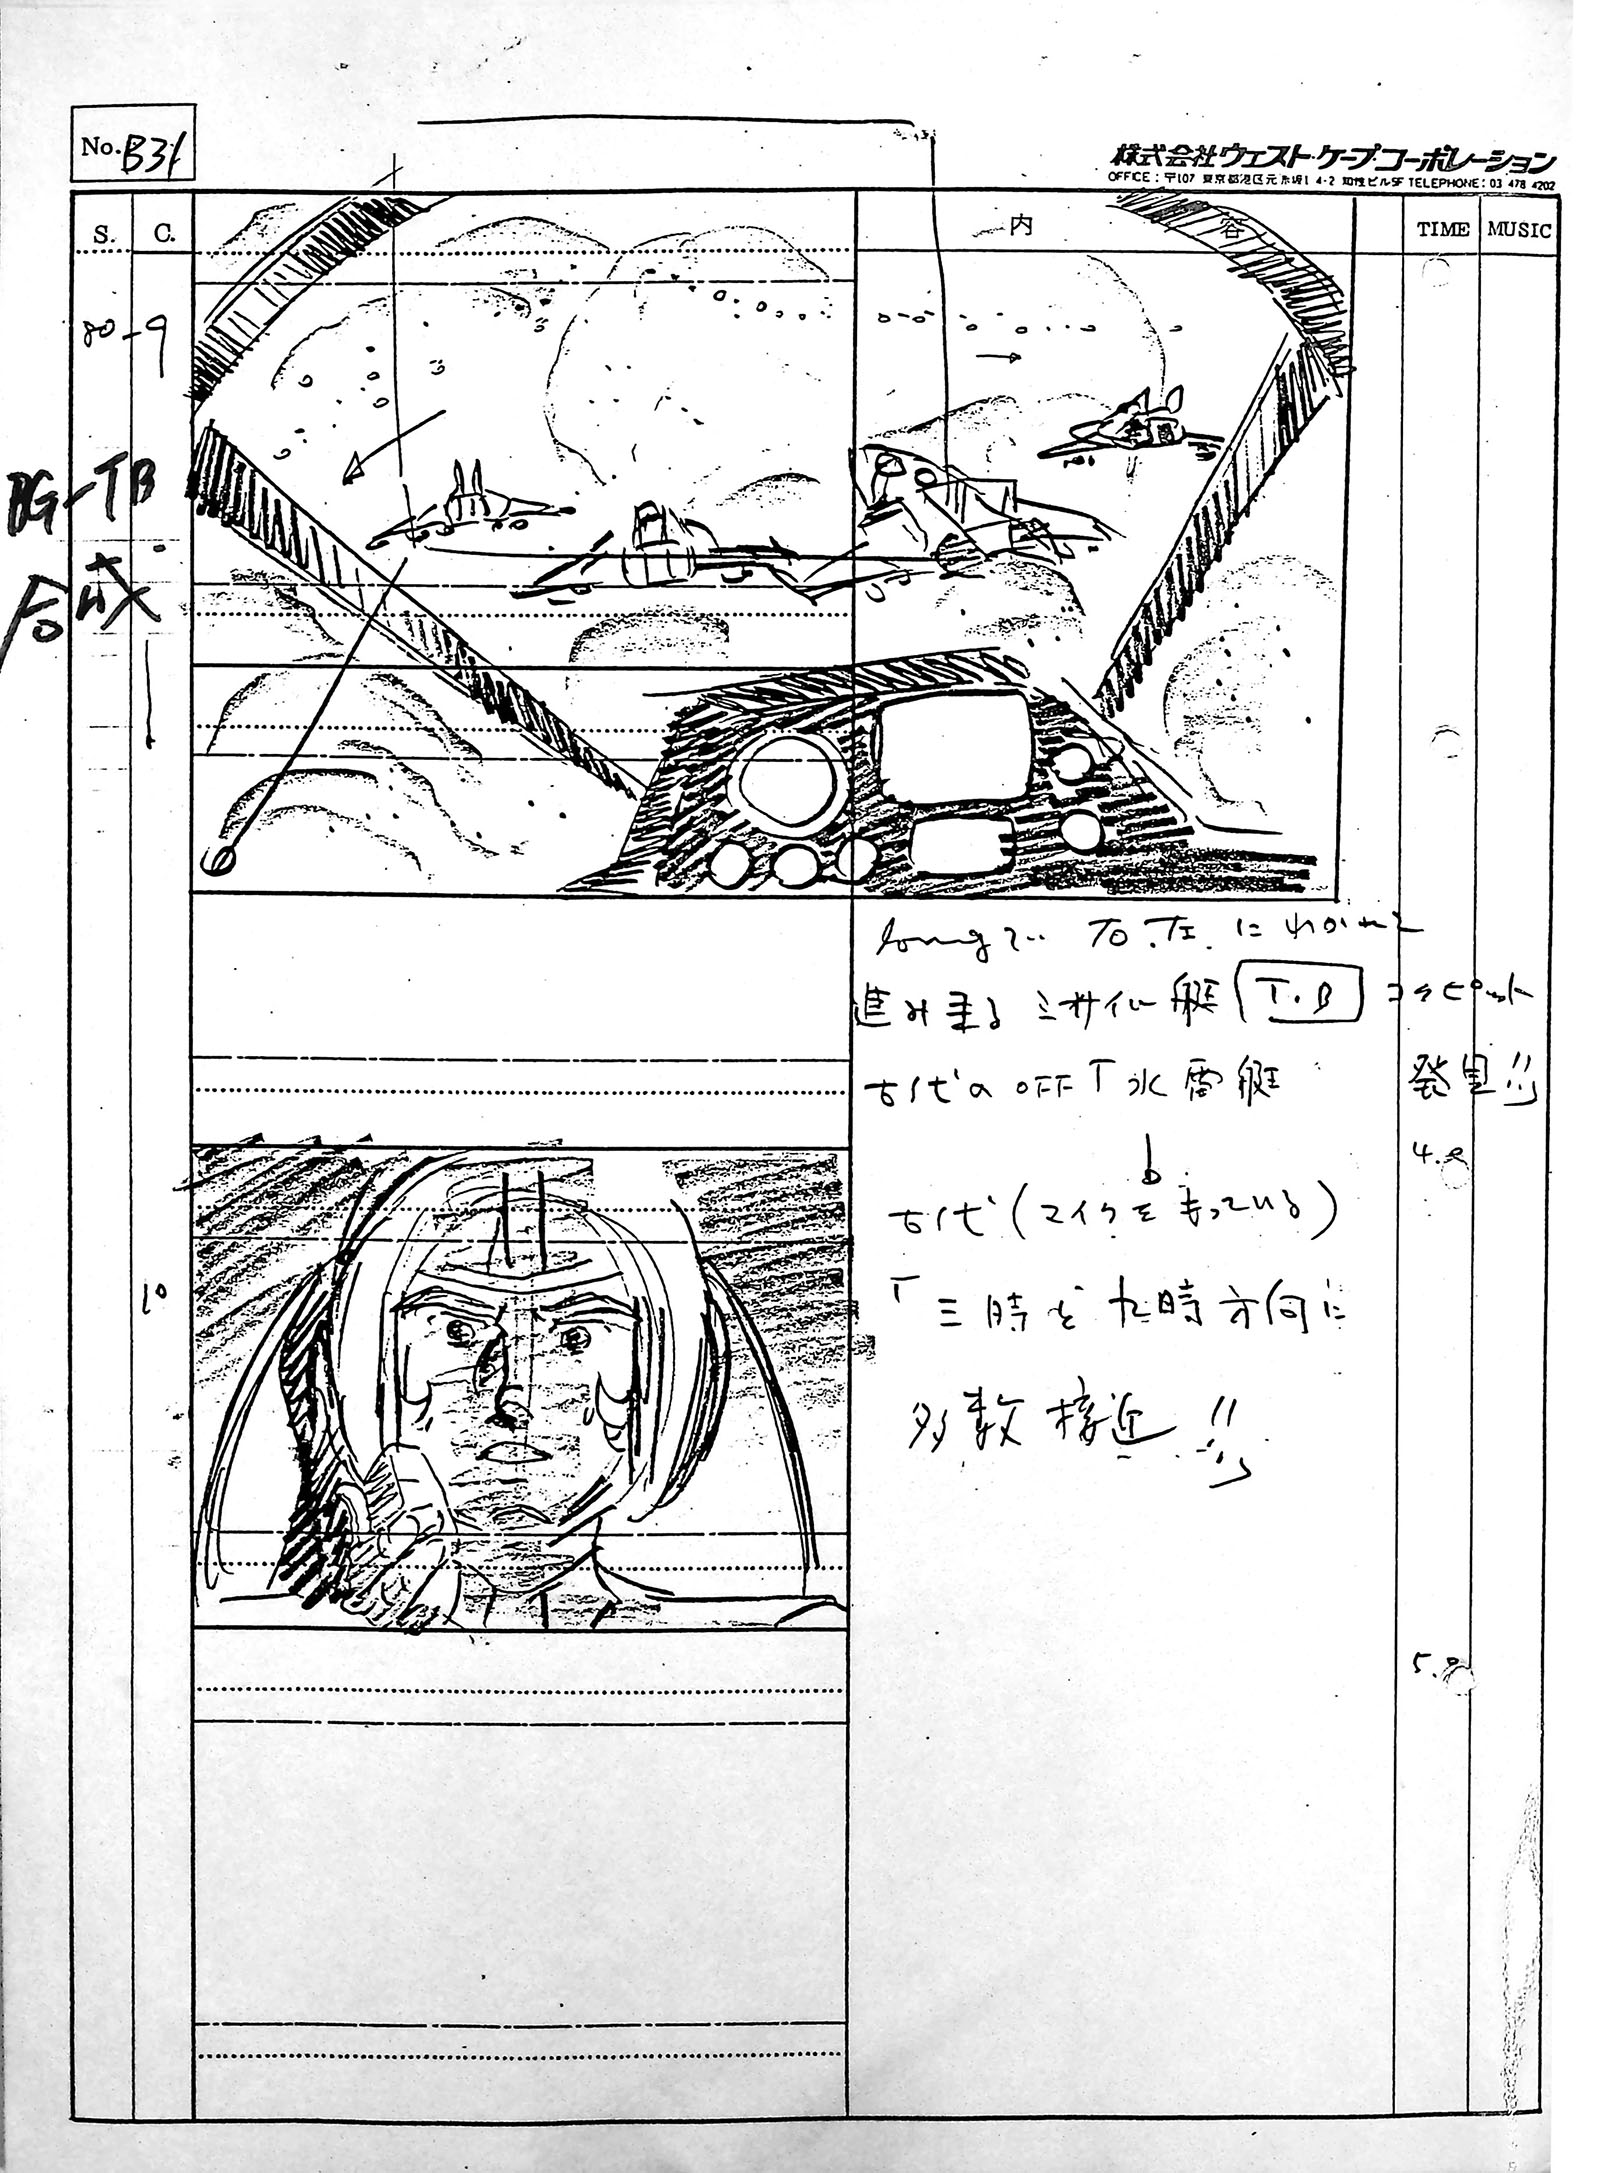 No. B31
株式会社ウェスト・ケープ・コーポレーション
OFFICE：〒107 東京都港区元赤坂1 4-2 知性ビル5F TELEPHONE：03 478 4202
S. C. 内 容 TIME MUSIC
80-9
BG-TB
合成
longで 右.左.に わかれて
進み来る ミサイル艇 T.B コクピット
古代の OFF「水雷艇 発見!!」
4.0
古代(マイクを もっている)
10
「三時と 九時方向に
多数 接近!!」
5.0